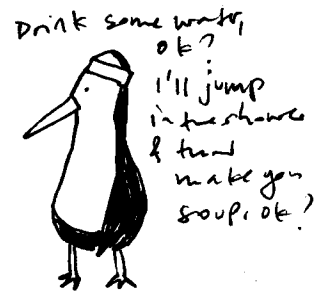 Drink some water,
ok?
I'll jump
in the shower
& then
make you
soup, ok?